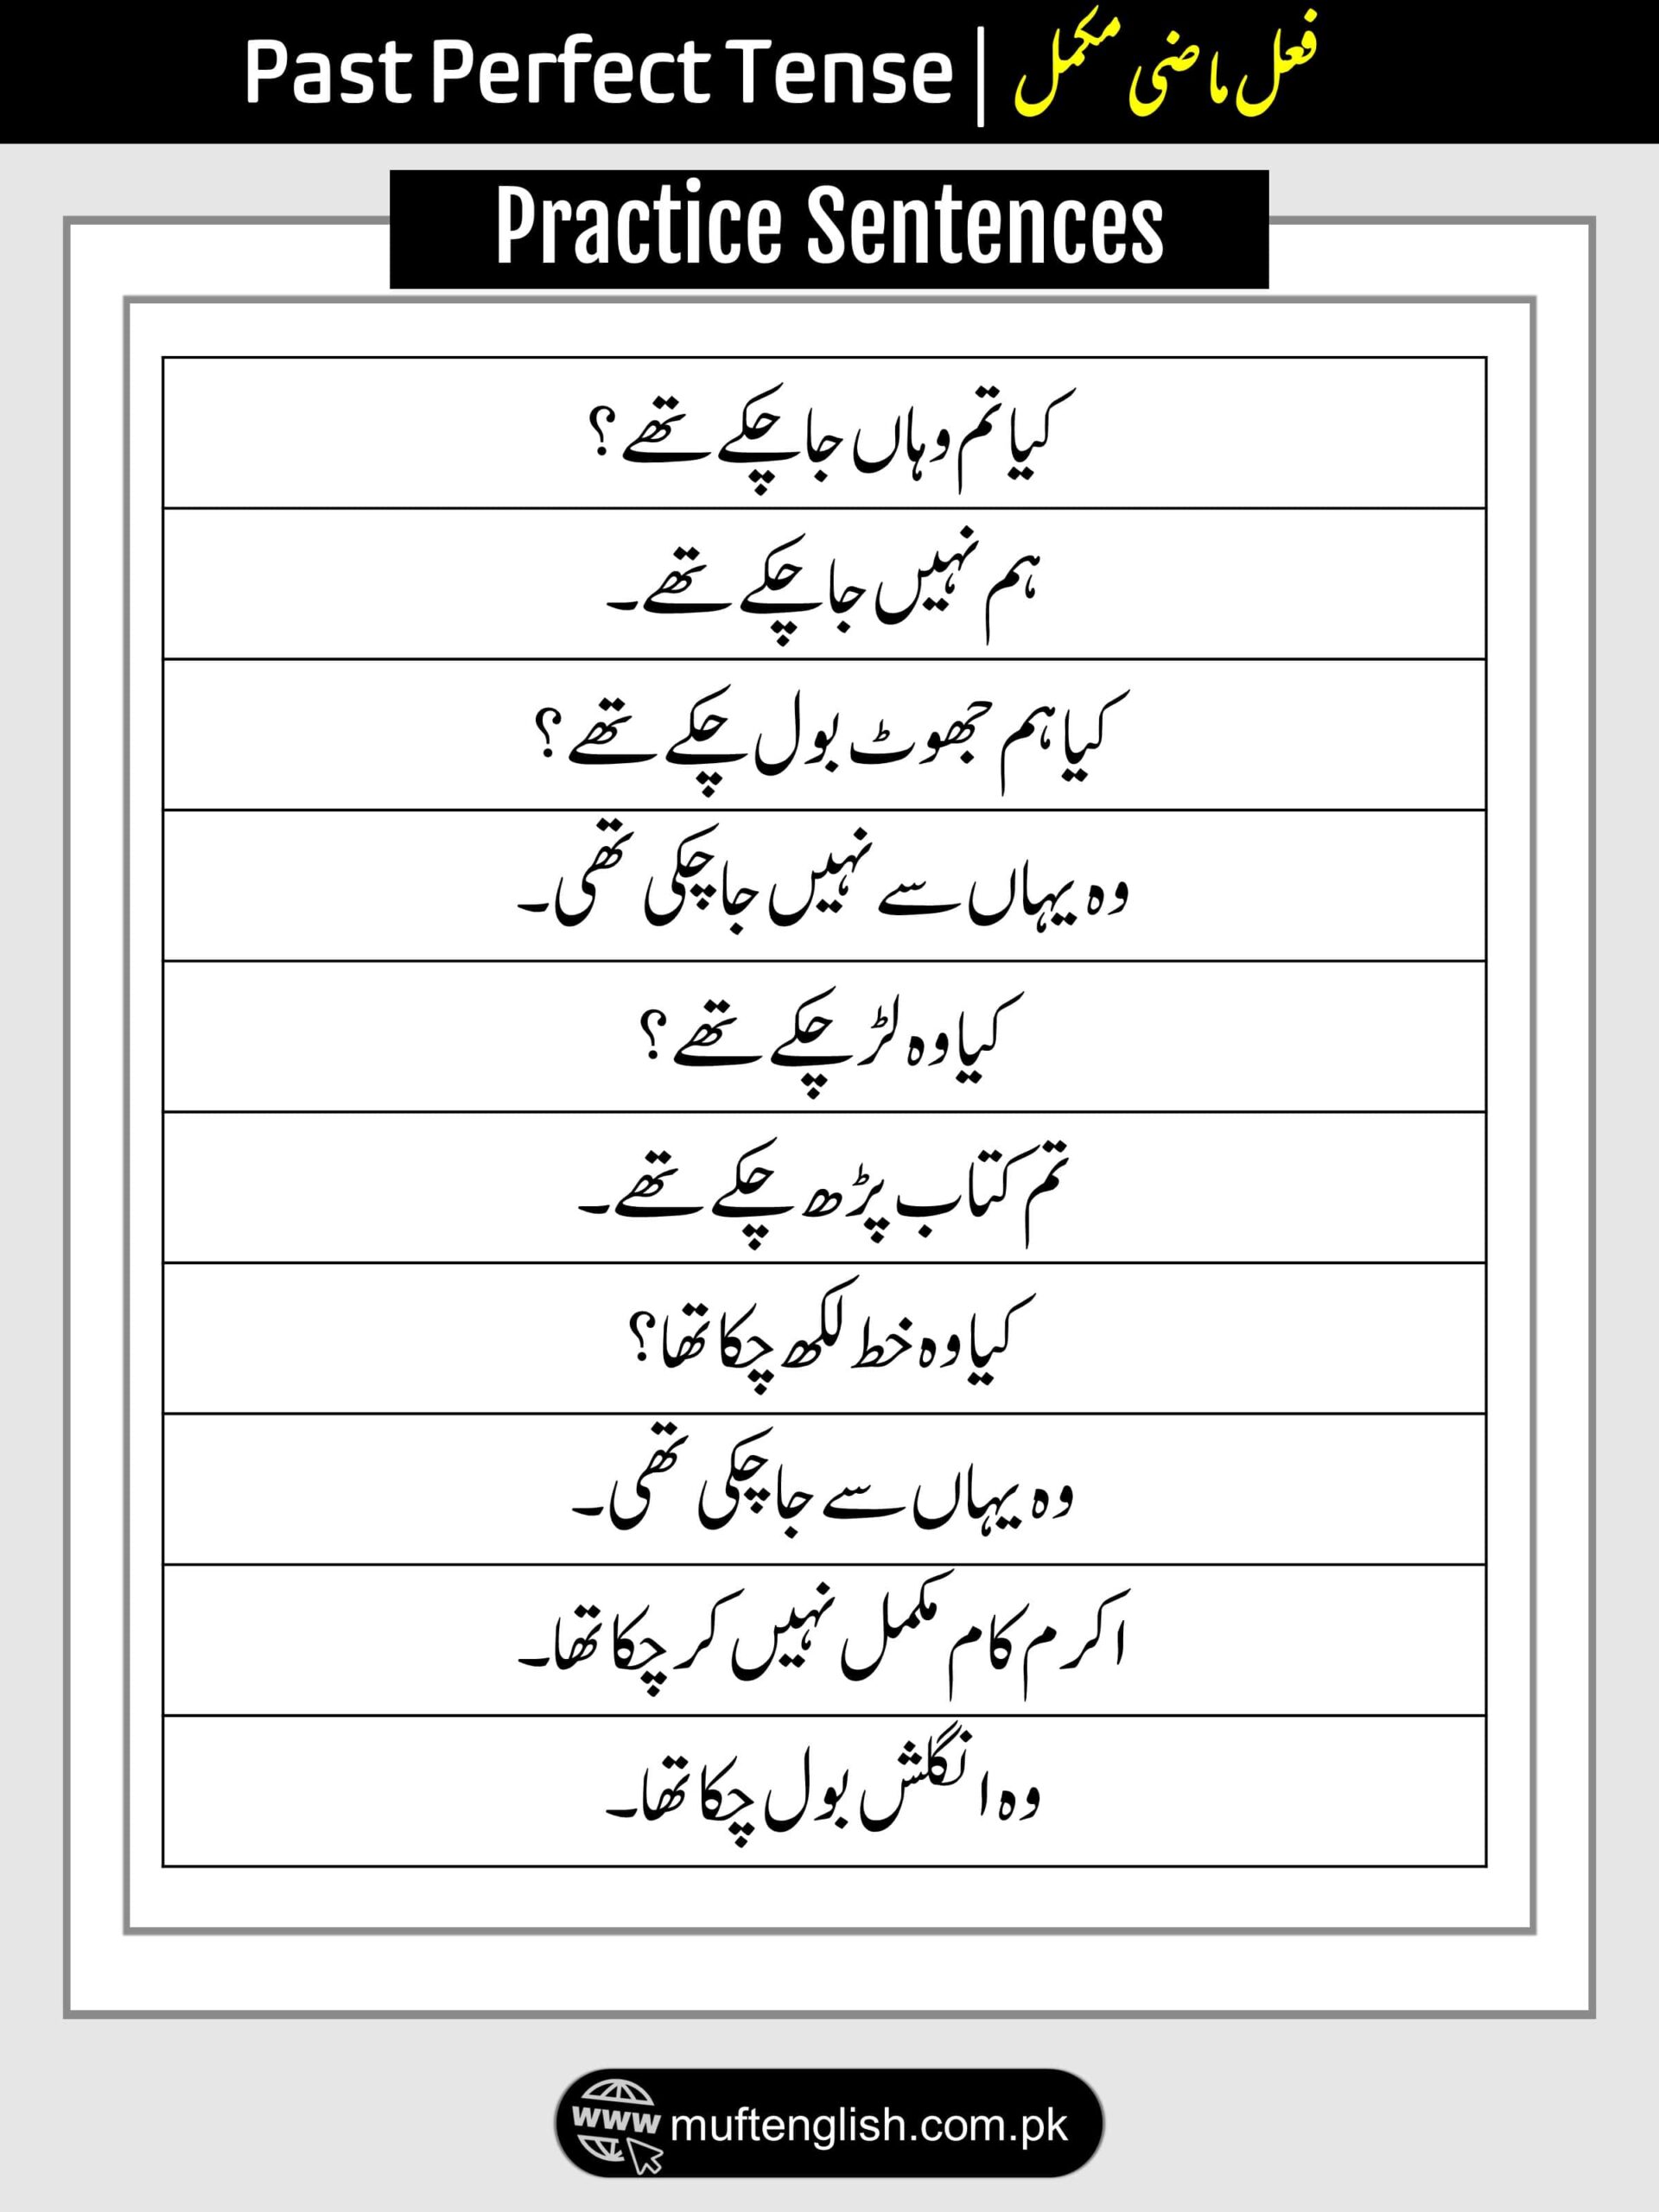 Past Perfect Tense | فعل ماضی مکمل
Practice Sentences
کیا تم وہاں جا چکے تھے؟
ہم نہیں جا چکے تھے۔
کیا ہم جھوٹ بول چکے تھے؟
وہ یہاں سے نہیں جا چکی تھی۔
کیا وہ لڑ چکے تھے؟
تم کتاب پڑھ چکے تھے۔
کیا وہ خط لکھ چکا تھا؟
وہ یہاں سے جا چکی تھی۔
اکرم کام مکمل نہیں کر چکا تھا۔
وہ انگلش بول چکا تھا۔
www muftenglish.com.pk